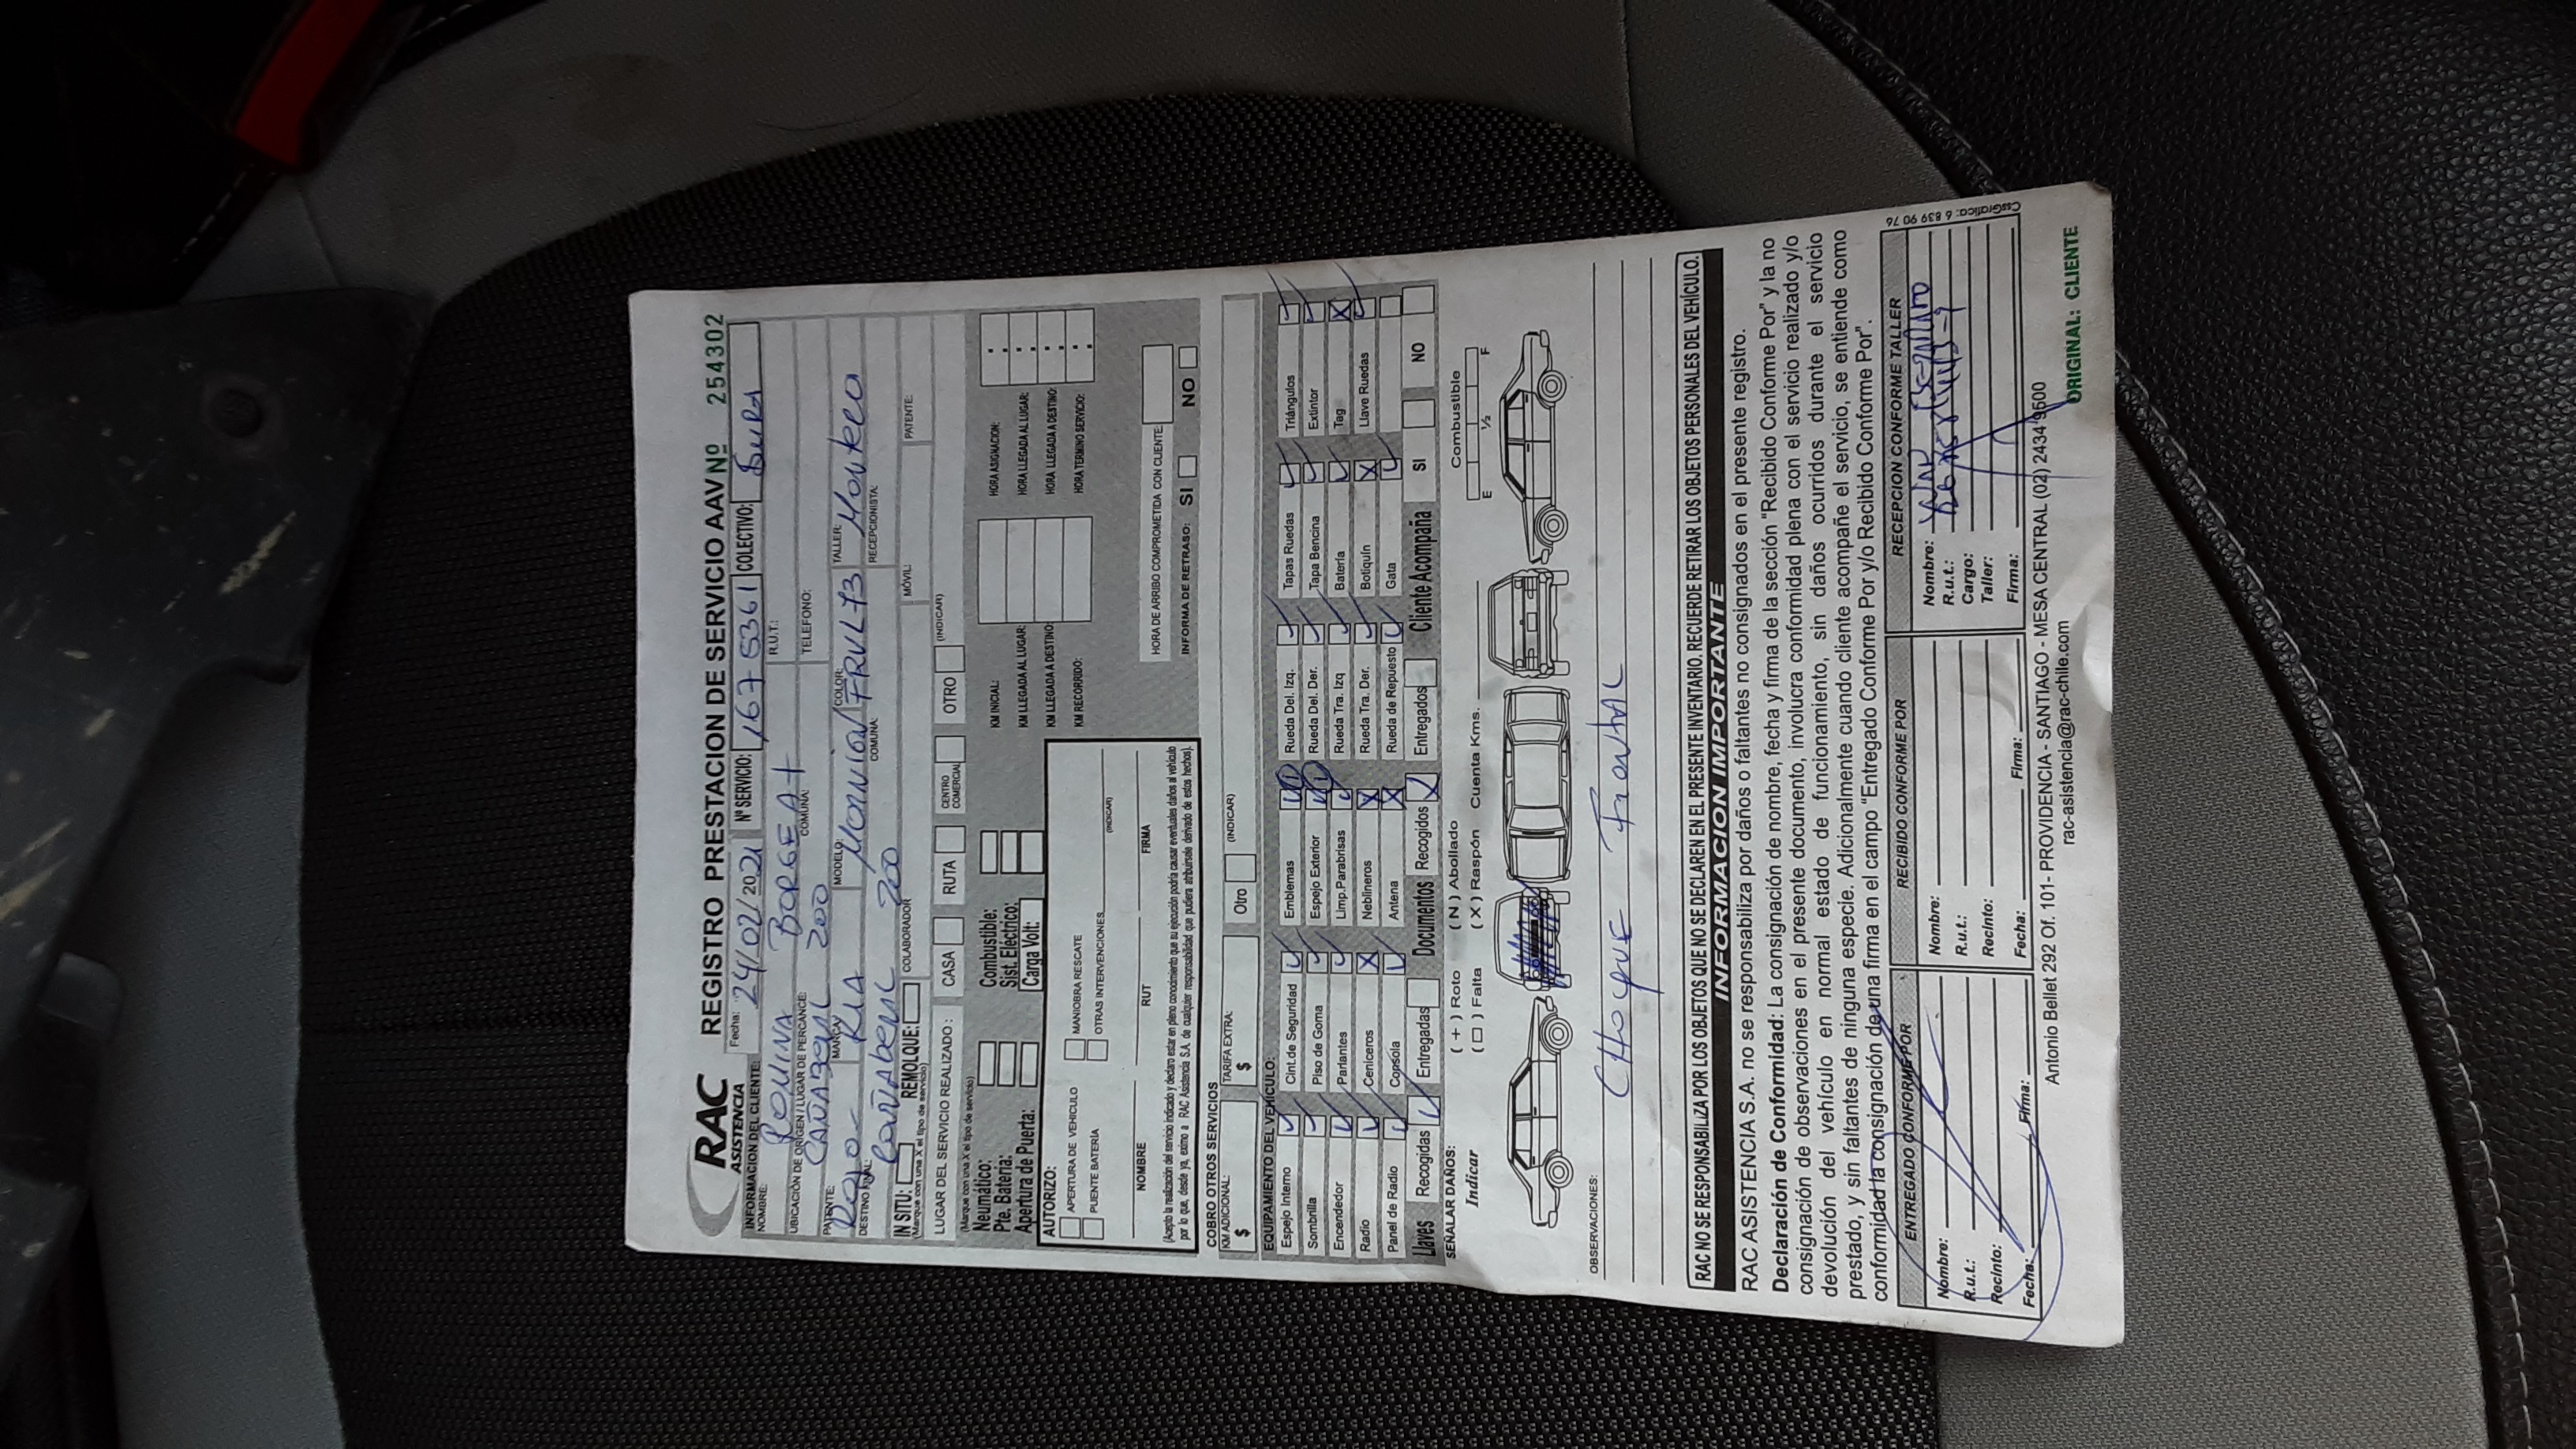 RAC
ASISTENCIA
REGISTRO PRESTACION DE SERVICIO AAV Nº 254302
Fecha: 24/02/2021 Nº SERVICIO: 167 5361 COLECTIVO:
INFORMACION DEL CLIENTE:
NOMBRE: BORGEAT R.U.T.:
UBICACIÓN DE ORIGEN / LUGAR DE PERCANCE: 200 COMUNA: TELEFONO:
PATENTE: MARCA: KIA MODELO: COLOR: TALLER:
ROJO - FRVL73 Montero
DESTINO FINAL: 200 COMUNA: RECEPCIONISTA:
IN SITU: REMOLQUE: COLABORADOR MÓVIL: PATENTE:
(Marque con una X el tipo de servicio)
LUGAR DEL SERVICIO REALIZADO: CASA RUTA CENTRO COMERCIAL OTRO (INDICAR)
(Marque con una X el tipo de servicio)
Neumático: Combustible: KM INICIAL: HORA ASIGNACION:
Pte. Batería: Sist. Eléctrico: KM LLEGADA AL LUGAR: HORA LLEGADA AL LUGAR:
Apertura de Puerta: Carga Volt: KM LLEGADA A DESTINO: HORA LLEGADA A DESTINO:
KM RECORRIDO: HORA TERMINO SERVICIO:
AUTORIZO:
APERTURA DE VEHICULO MANIOBRA RESCATE
PUENTE BATERÍA OTRAS INTERVENCIONES (INDICAR)
NOMBRE RUT FIRMA
(Acepto la realización del servicio indicado y declaro estar en pleno conocimiento que su ejecución podría causar eventuales daños al vehículo
por lo que, desde ya, eximo a RAC Asistencia S.A. de cualquier responsabilidad que pudiera atribuírsele derivado de estos hechos).
HORA DE ARRIBO COMPROMETIDA CON CLIENTE:
INFORMA DE RETRASO: SI NO
COBRO OTROS SERVICIOS
KM ADICIONAL: $ TARIFA EXTRA: $ Otro (INDICAR)
EQUIPAMIENTO DEL VEHÍCULO:
Espejo Interno Cint.de Seguridad Emblemas Rueda Del. Izq. Tapas Ruedas Triángulos
Sombrilla Piso de Goma Espejo Exterior Rueda Del. Der. Tapa Bencina Extintor
Encendedor Parlantes Limp.Parabrisas Rueda Tra. Izq Batería Tag
Radio Ceniceros Neblineros Rueda Tra. Der. Botiquín Llave Ruedas
Panel de Radio Consola Antena Rueda de Repuesto Gata
Llaves Recogidas Entregadas Documentos Recogidos Entregados Cliente Acompaña SI NO
SEÑALAR DAÑOS: ( + ) Roto ( N ) Abollado
Indicar ( □ ) Falta ( X ) Raspón Cuenta Kms. Combustible
E ½ F
OBSERVACIONES:
CHOQUE Frontal
RAC NO SE RESPONSABILIZA POR LOS OBJETOS QUE NO SE DECLAREN EN EL PRESENTE INVENTARIO. RECUERDE RETIRAR LOS OBJETOS PERSONALES DEL VEHÍCULO.
INFORMACION IMPORTANTE
RAC ASISTENCIA S.A. no se responsabiliza por daños o faltantes no consignados en el presente registro.
Declaración de Conformidad: La consignación de nombre, fecha y firma de la sección "Recibido Conforme Por" y la no
consignación de observaciones en el presente documento, involucra conformidad plena con el servicio realizado y/o
devolución del vehículo en normal estado de funcionamiento, sin daños ocurridos durante el servicio
prestado, y sin faltantes de ninguna especie. Adicionalmente cuando cliente acompañe el servicio, se entiende como
conformidad la consignación de una firma en el campo "Entregado Conforme Por y/o Recibido Conforme Por".
ENTREGADO CONFORME POR RECIBIDO CONFORME POR RECEPCION CONFORME TALLER
Nombre: Nombre: Nombre:
R.u.t.: R.u.t.: R.u.t.:
Recinto: Recinto: Cargo:
Taller:
Fecha: Firma: Fecha: Firma: Firma:
CssGrafica: 6 839 90 76
Antonio Bellet 292 Of. 101- PROVIDENCIA - SANTIAGO - MESA CENTRAL (02) 2434 9500
rac-asistencia@rac-chile.com
ORIGINAL: CLIENTE